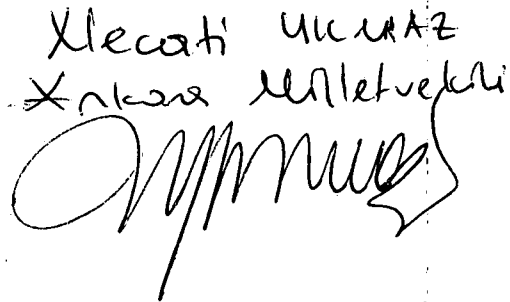 Necati YILMAZ
Ankara Milletvekili